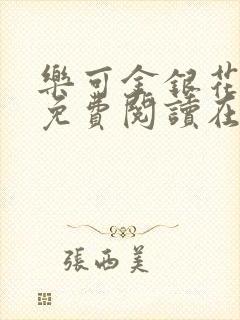 樂可金銀花
免費閱讀在
張西美